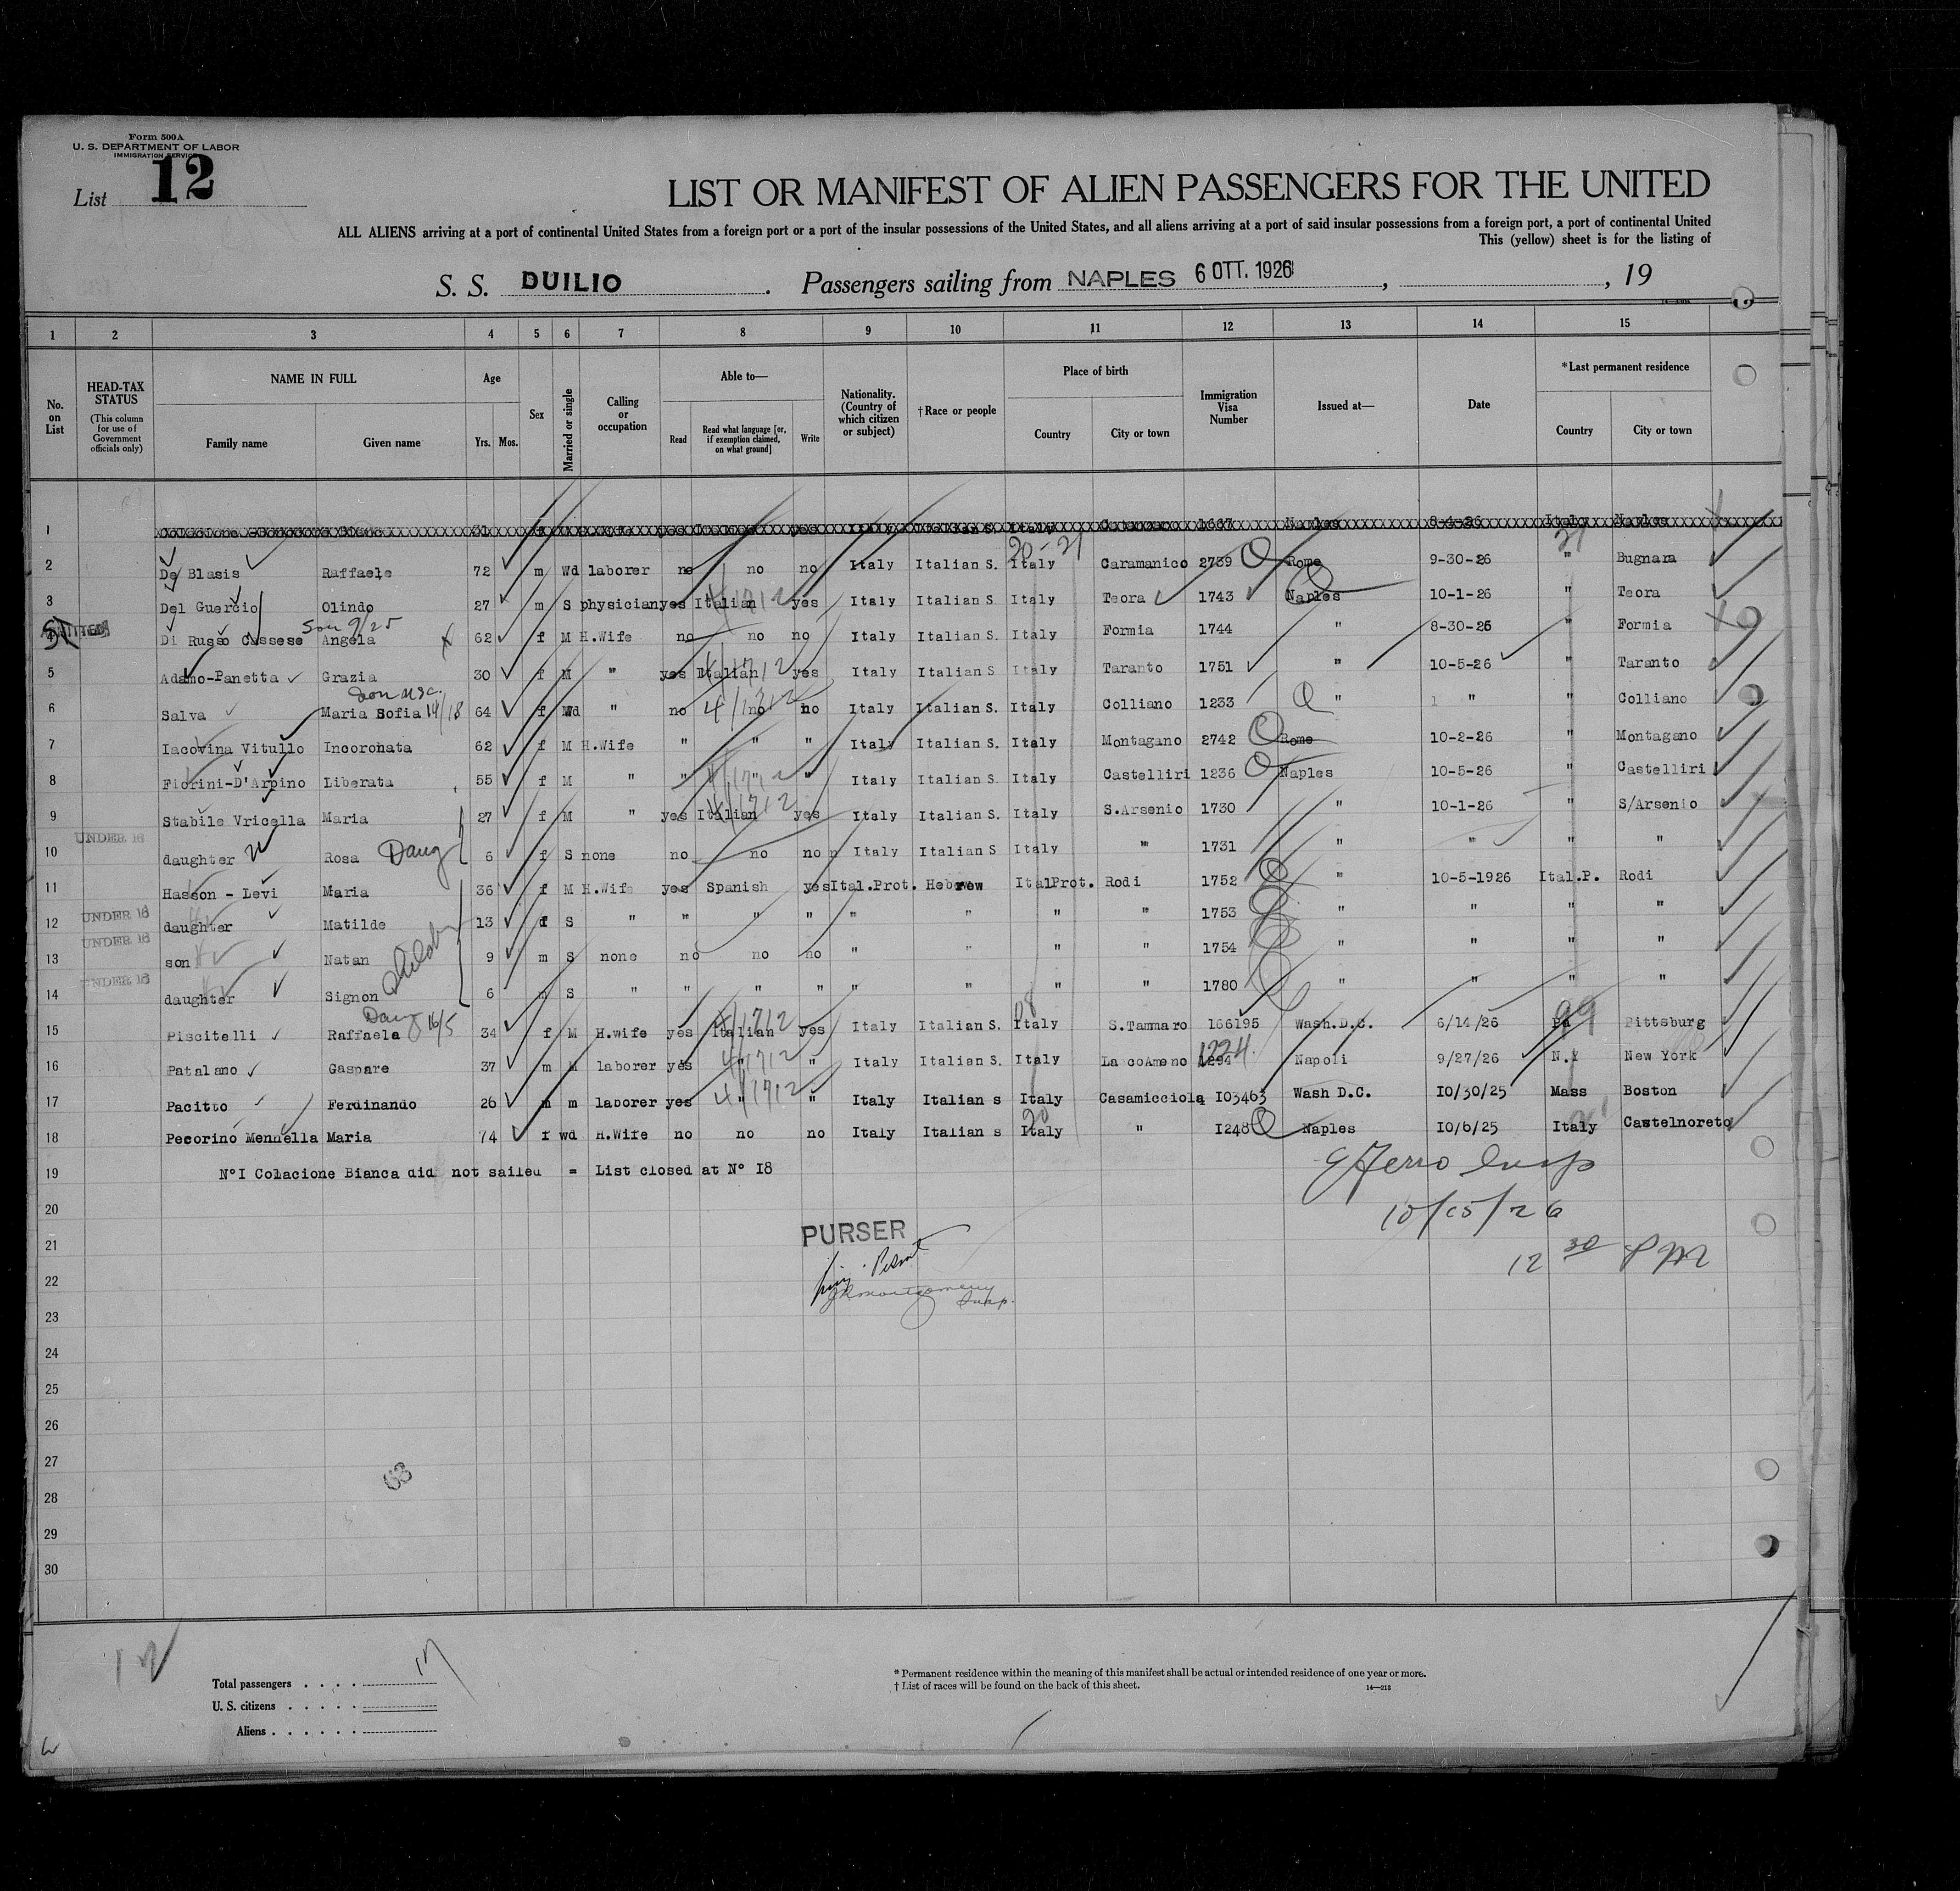 Form 500A
U. S. DEPARTMENT OF LABOR
IMMIGRATION SERVICE
List 12
LIST OR MANIFEST OF ALIEN PASSENGERS FOR THE UNITED
ALL ALIENS arriving at a port of continental United States from a foreign port or a port of the insular possessions of the United States, and all aliens arriving at a port of said insular possessions from a foreign port, a port of continental United
This (yellow) sheet is for the listing of
S. S. DUILIO. Passengers sailing from NAPLES 6 OTT. 1926, , 19
1 2 3 4 5 6 7 8 9 10 11 12 13 14 15
No. on List
HEAD-TAX STATUS (This column for use of Government officials only)
NAME IN FULL
Family name Given name
Age
Yrs. Mos.
Sex
Married or single
Calling or occupation
Able to—
Read Read what language [or, if exemption claimed, on what ground] Write
Nationality. (Country of which citizen or subject)
†Race or people
Place of birth
Country City or town
Immigration Visa Number
Issued at—
Date
*Last permanent residence
Country City or town
1 31 f yes yes Italy Italian S. Italy 1667 Naples 8-4-26 Italy Naples
20-21 21
2 De Blasis Raffaele 72 m Wd laborer no no no Italy Italian S. Italy Caramanico 2739 Rome 9-30-26 " Bugnara
3 Del Guercio Olindo 27 m S physician yes Italian yes Italy Italian S Italy Teora 1743 Naples 10-1-26 " Teora
Son 9/25
4 Di Russo Cassese Angela 62 f M H.Wife no no no Italy Italian S. Italy Formia 1744 " 8-30-26 " Formia
5 Adamo-Panetta Grazia 30 f M " yes Italian yes Italy Italian S Italy Taranto 1751 " 10-5-26 " Taranto
6 Salva Maria Sofia 14/18 64 f Wd " no no no Italy Italian S. Italy Colliano 1233 " " " Colliano
7 Iacovina Vitullo Incoronata 62 f M H.Wife " " " Italy Italian S. Italy Montagano 2742 Rome 10-2-26 " Montagano
8 Fiorini-D'Arpino Liberata 55 f M " " " " Italy Italian S Italy Castelliri 1236 Naples 10-5-26 " Castelliri
9 Stabile Vricella Maria 27 f M " yes Italian yes Italy Italian S. Italy S.Arsenio 1730 " 10-1-26 " S/Arsenio
UNDER 16
10 daughter Rosa Daug 6 f S none no no no Italy Italian S Italy " 1731 " " " "
11 Hasson - Levi Maria 36 f M H.Wife yes Spanish yes Ital.Prot. Hebrew ItalProt. Rodi 1752 " 10-5-1926 Ital.P. Rodi
UNDER 16
12 daughter Matilde 13 f S " " " " " " " " 1753 " " " "
UNDER 16
13 son Natan 9 m S none no no no " " " " 1754 " " " "
UNDER 16
14 daughter Signon 6 S " " " " " " " " 1780 " " " "
Daug 16/5
15 Piscitelli Raffaela 34 f M H.wife yes Italian yes Italy Italian S. Italy S.Tammaro 166195 Wash.D.C. 6/14/26 Pa Pittsburg
16 Patalano Gaspare 37 m M laborer yes " " Italy Italian S. Italy LaccoAmeno 1294 1224 Napoli 9/27/26 N.Y New York
17 Pacitto Ferdinando 26 m m laborer yes " " Italy Italian s Italy Casamicciola I03463 Wash D.C. I0/30/25 Mass Boston
18 Pecorino Mennella Maria 74 f wd H.Wife no no no Italy Italian s Italy " I248 Naples I0/6/25 Italy Castelnoreto
19 N°I Colacione Bianca did not sailed = List closed at N° I8
20
21
22
23
24
25
26
27
28
29
30
10/15/26
12 30 PM
PURSER
JRMontgomery
Insp.
63
Total passengers . . . . 17
U. S. citizens . . . . .
Aliens . . . . . .
* Permanent residence within the meaning of this manifest shall be actual or intended residence of one year or more.
† List of races will be found on the back of this sheet.
14—213